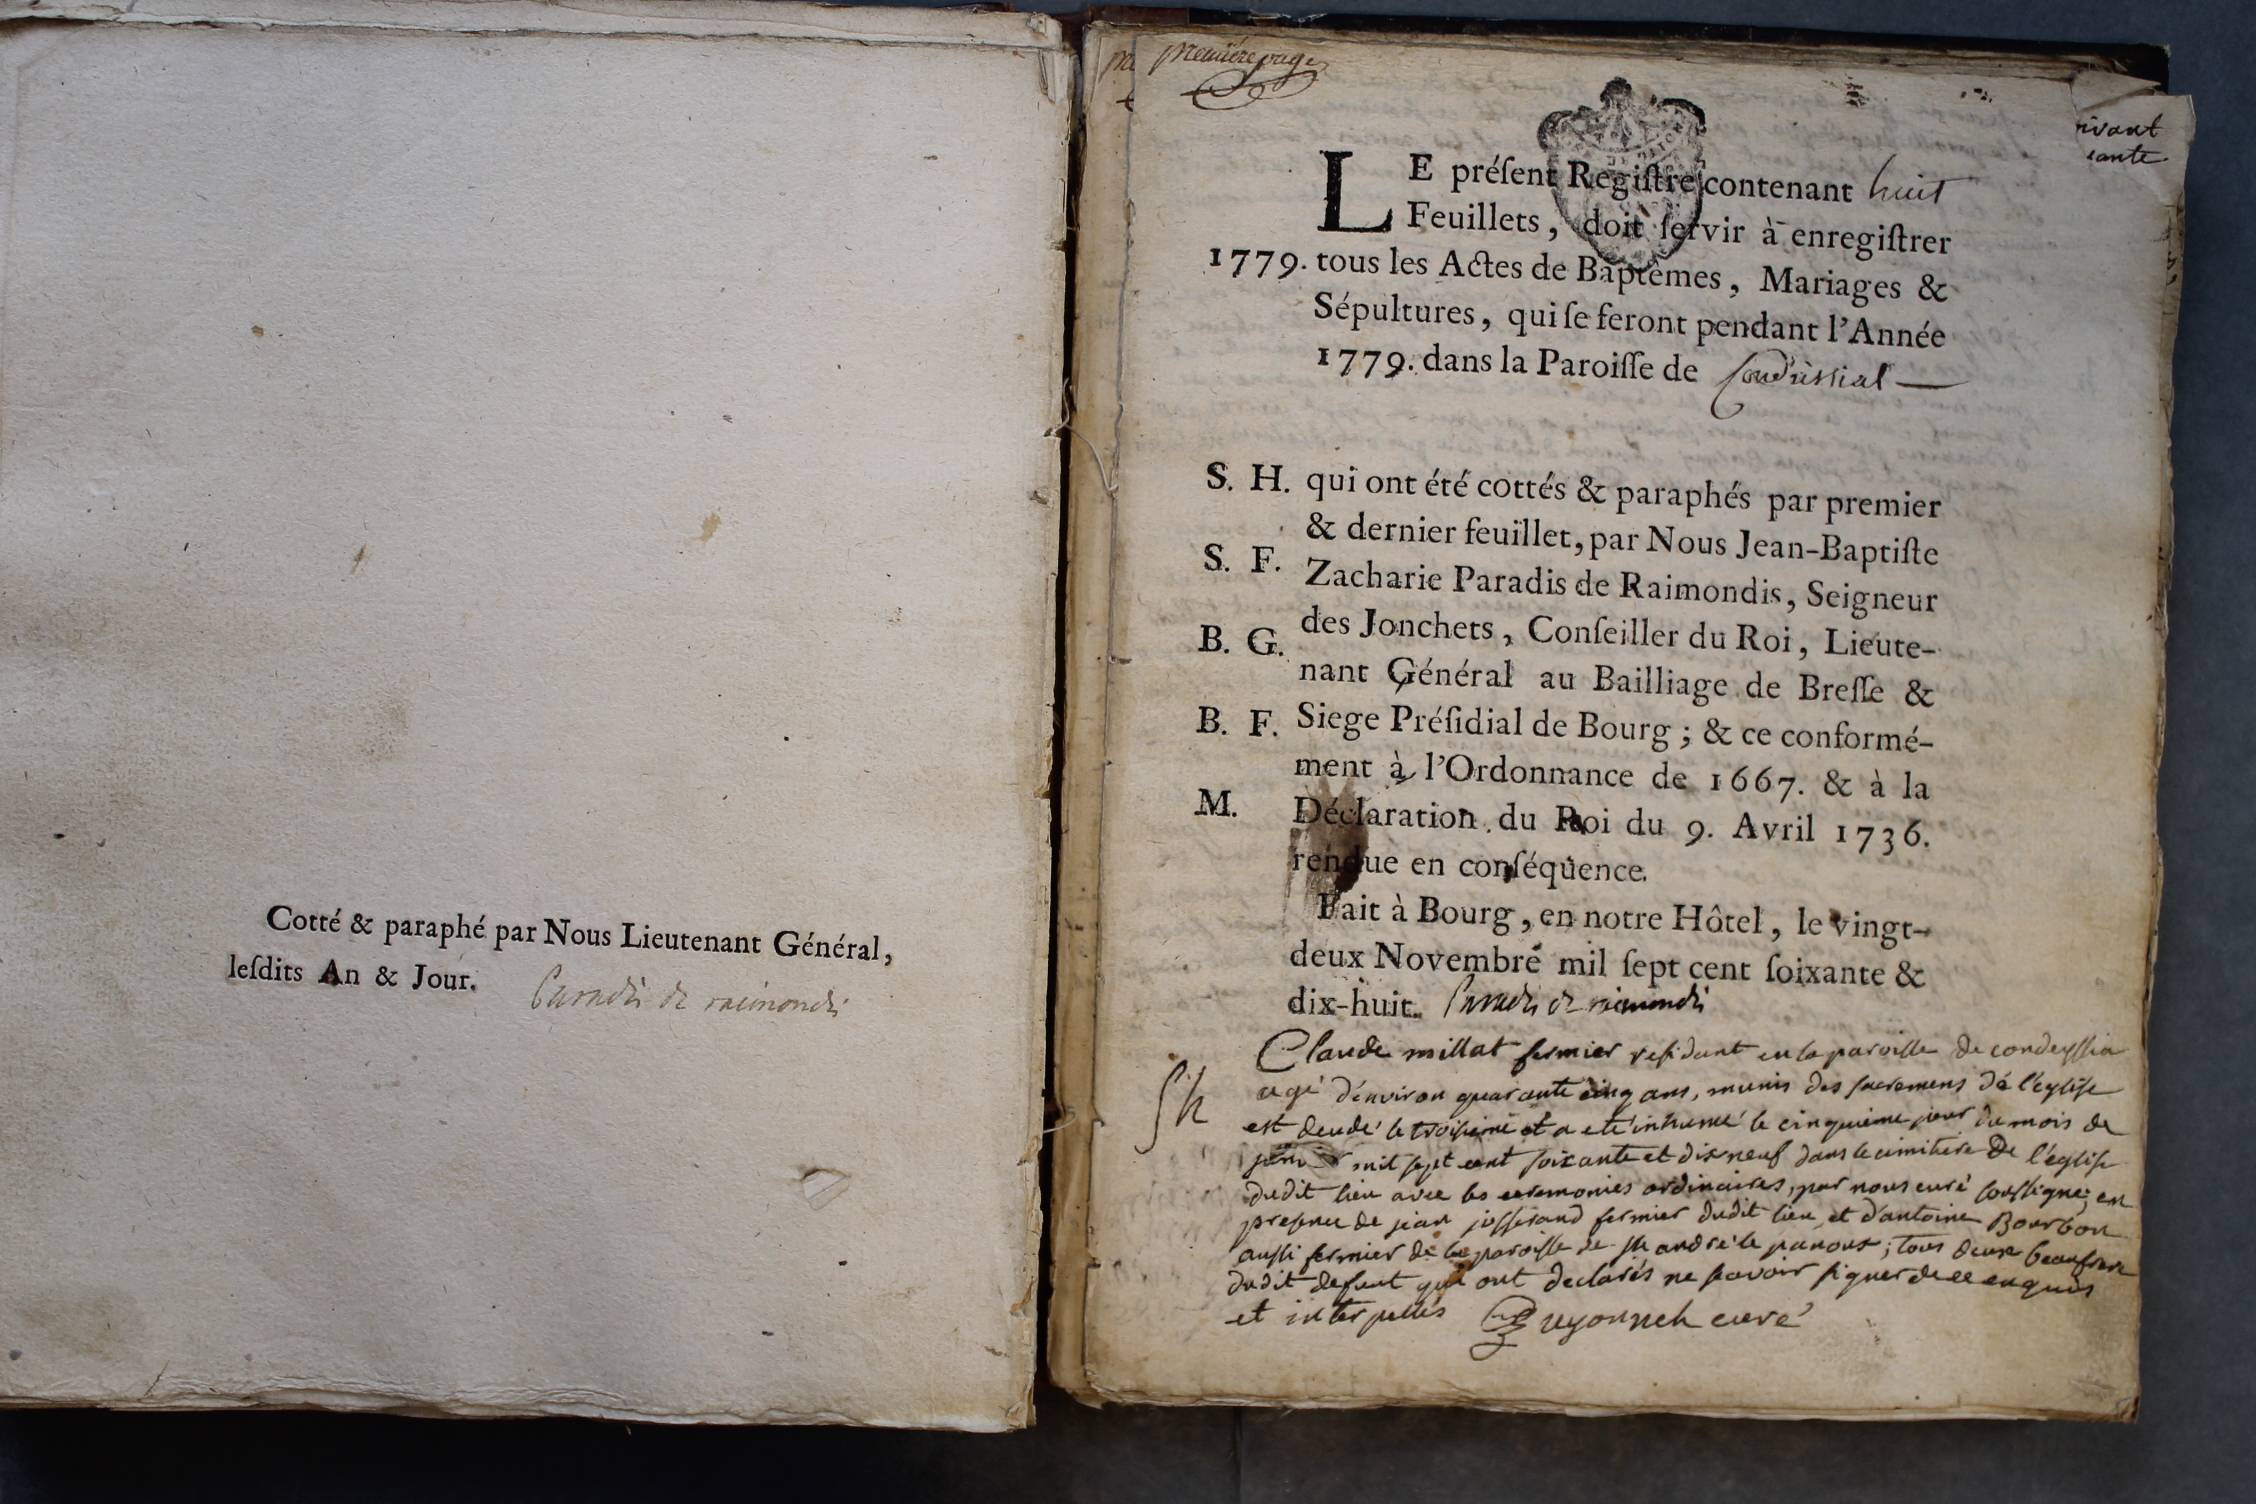 Cotté & paraphé par Nous Lieutenant Général,
leſdits An & Jour. Paradis de raimondis
premiere page
LE préſent Regiſtre contenant huit
Feuillets, doit ſervir à enregiſtrer
1779. tous les Actes de Baptêmes, Mariages &
Sépultures, qui ſe feront pendant l'Année
1779. dans la Paroiſſe de Condeissiat
S. H. qui ont été cottés & paraphés par premier
& dernier feuillet, par Nous Jean-Baptiſte
S. F. Zacharie Paradis de Raimondis, Seigneur
des Jonchets, Conſeiller du Roi, Lieute-
B. G. nant Général au Bailliage de Breſſe &
B. F. Siege Préſidial de Bourg; & ce conformé-
ment à l'Ordonnance de 1667. & à la
M. Déclaration du Roi du 9. Avril 1736.
rendue en conſéquence.
Fait à Bourg, en notre Hôtel, le vingt-
deux Novembre mil ſept cent ſoixante &
dix-huit. Paradis de raimondis
Claude millat fermier residant en la paroisse de condeyssia
Sh agé d'environ quarante cinq ans, munis des sacremens de l'église
est decedé le troisieme et a eté inhumé le cinquieme jour du mois de
janvier mil sept cent soixante et dix neuf dans le cimitiere De l'église
dudit lieu avec les ceremonies ordinaires, par nous curé soussigné; en
presence de jean josserand fermier dudit lieu et d'antoine Bourbon
aussi fermier de la paroisse de st andré le panoux; tous deux beaufrere
dudit defunt qui ont declarés ne scavoir signer de ce enquis
et interpellés curé
ivant
ante.